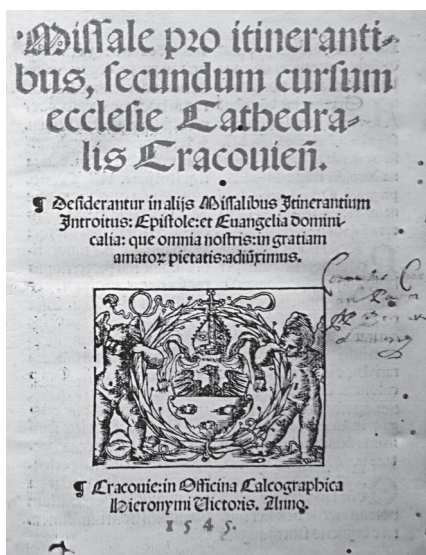 Missale pro itineranti-
bus, secundum cursum
ecclesie Cathedra-
lis Cracovieñ.
¶ Desiderantur in alijs Missalibus Itinerantium
Introitus: Epistole: et Euangelia domini-
calia: que omnia nostris: in gratiam
amatoꝝ pietatis: adiūximus.
¶ Cracovie: in Officina Calcographica
Hieronymi Victoris. Anno.
1545.